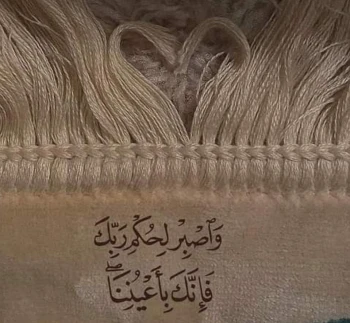 وَٱصۡبِرۡ لِحُكۡمِ رَبِّكَ
فَإِنَّكَ بِأَعۡيُنِنَاۖ